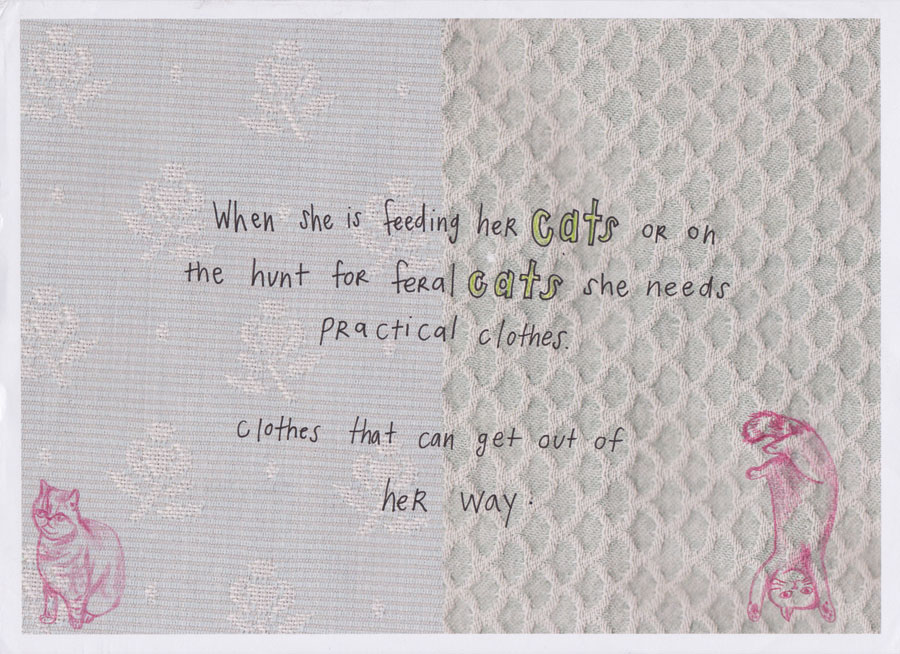 When she is feeding her cats or on
the hunt for feral cats she needs
practical clothes.
clothes that can get out of
her way.